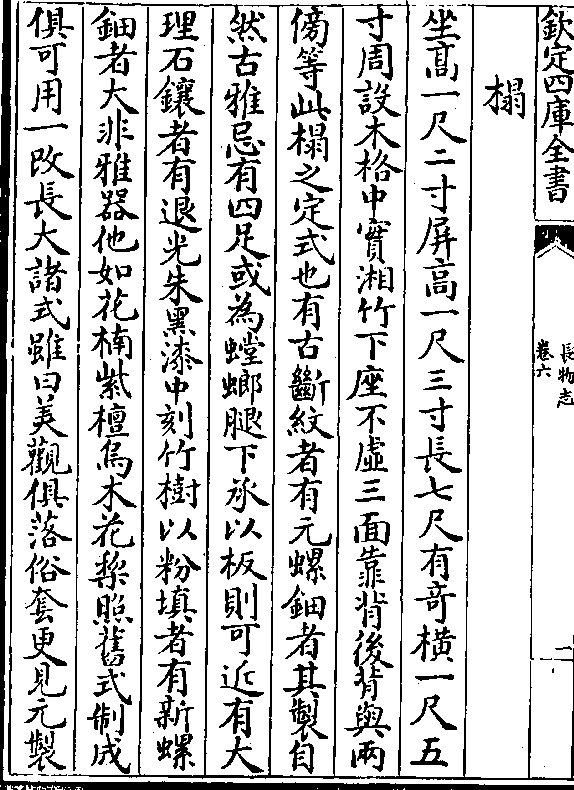 欽定四庫全書
長物志
卷六
二
榻
坐髙一尺二寸屏高一尺三寸長七尺有竒横一尺五
寸周設木格中實湘竹下座不虛三面靠背後背與兩
傍等此榻之定式也有古斷紋者有元螺鈿者其製自
然古雅忌有四足或為螳螂腿下承以板則可近有大
理石鑲者有退光朱黑漆中刻竹樹以粉填者有新螺
鈿者大非雅器他如花楠紫檀烏木花梨照舊式制成
俱可用一改長大諸式雖曰美觀俱落俗套更見元製